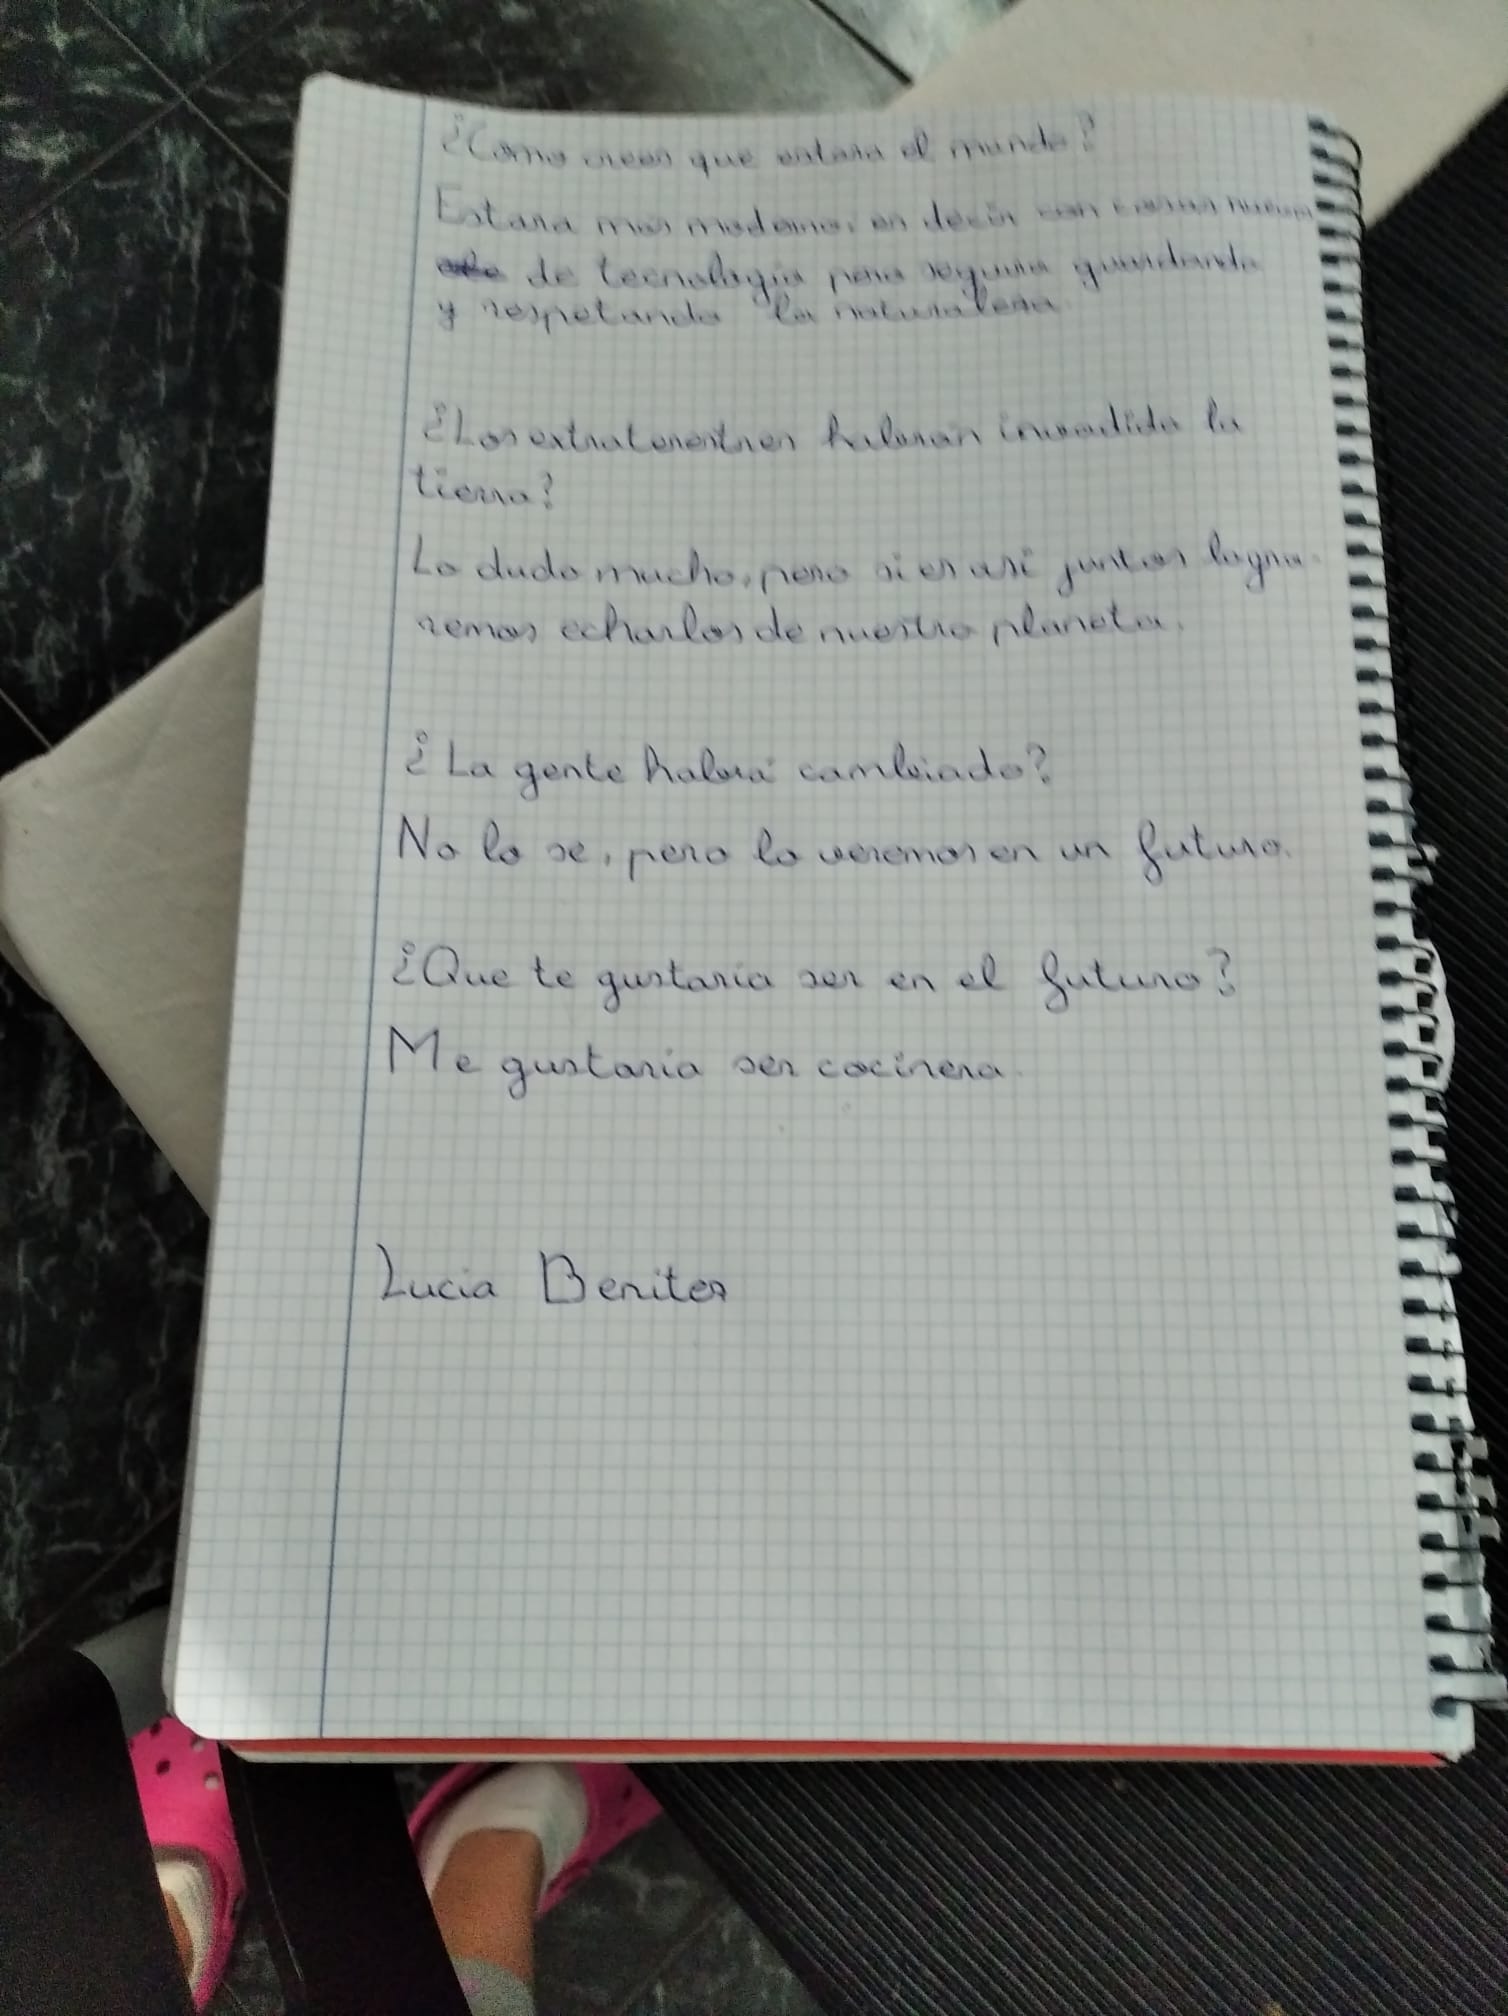 ¿Como crees que estara el mundo?
Estara mas moderno, es decir con cosas nuevas
de tecnologia pero seguira guardando
y respetando la naturaleza.
¿Los extraterestres habrán invadido la
tierra?
Lo dudo mucho, pero si es asi juntos logra-
remos echarlos de nuestro planeta.
¿La gente habrá cambiado?
No lo se, pero lo veremos en un futuro.
¿Que te gustaria ser en el futuro?
Me gustaria ser cocinera.
Lucia Benitez